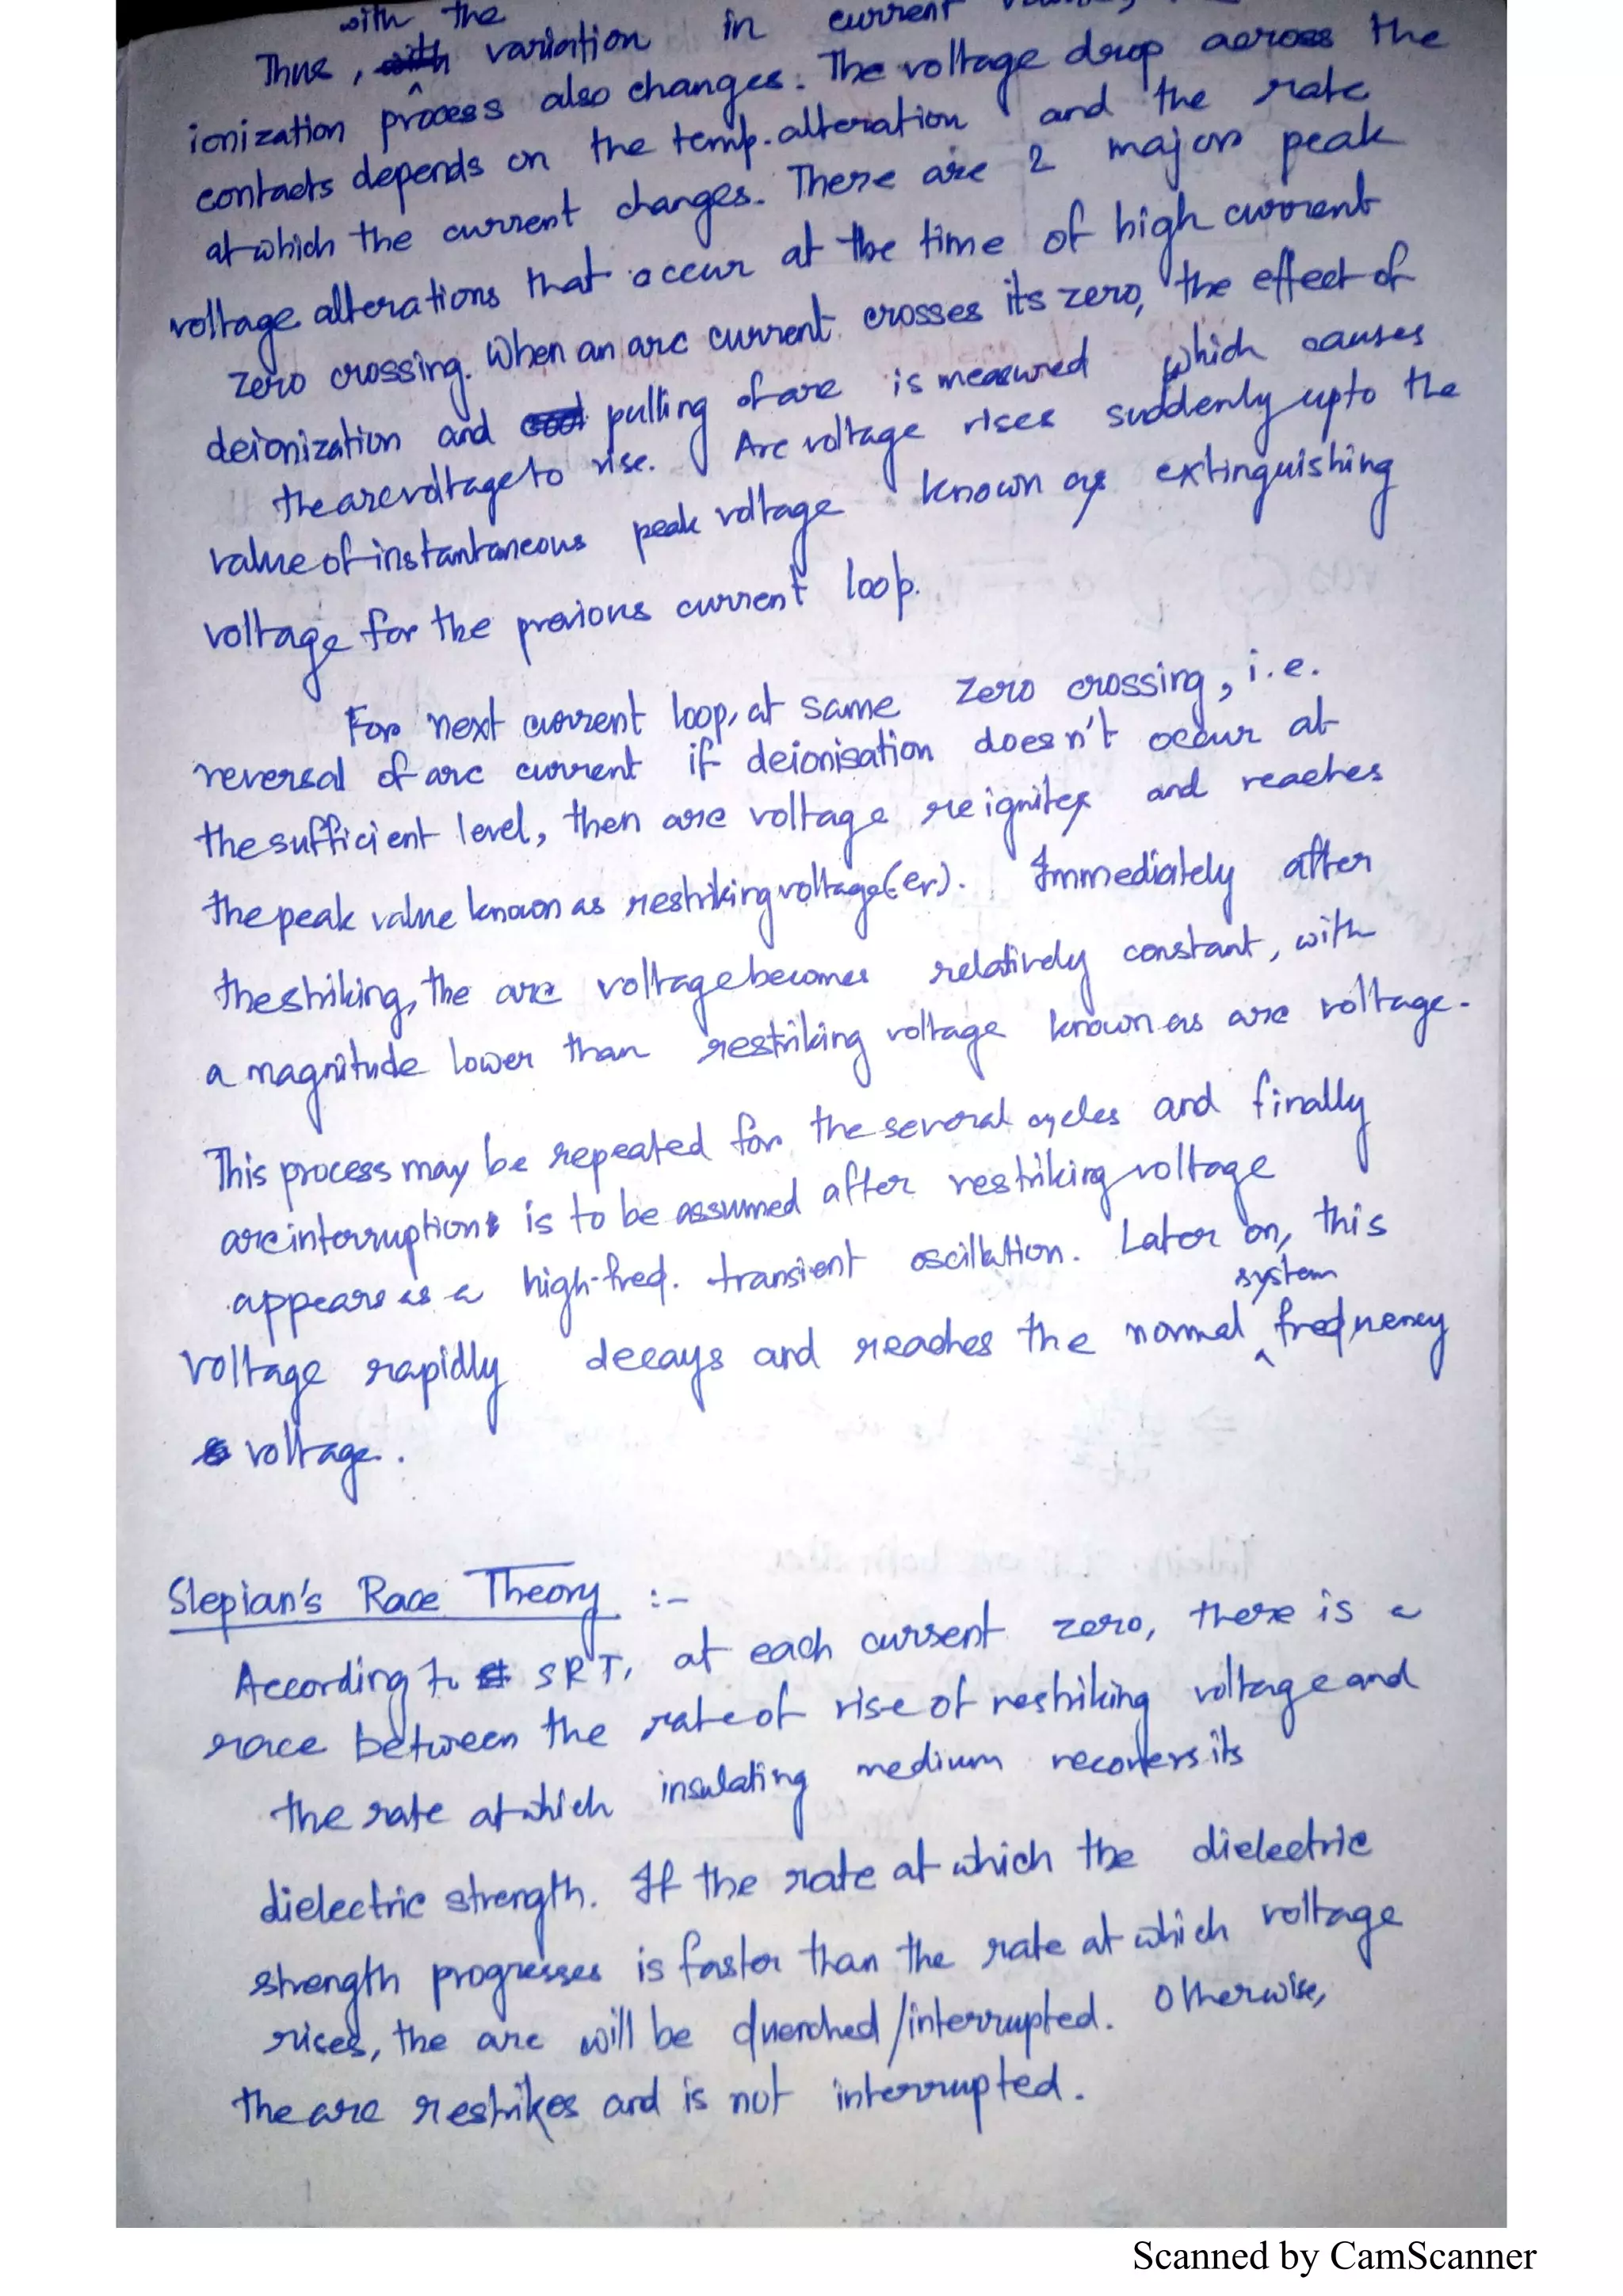 with the
Thus, variation in current
ionization process also changes. The voltage drop across the
contacts depends on the temp. alteration and the rate
at which the current changes. There are 2 major peak
voltage alterations that occur at the time of high current
zero crossing. When an arc current crosses its zero, the effect of
deionization and pulling of arc is measured which causes
the arc voltage to rise. Arc voltage rises suddenly upto the
value of instantaneous peak voltage known as extinguishing
voltage for the previous current loop.
For next current loop, at same zero crossing, i.e.
reversal of arc current if deionisation doesn't occur at
the sufficient level, then arc voltage reignites and reaches
the peak value known as restriking voltage (er). Immediately after
the striking, the arc voltage becomes relatively constant, with
a magnitude lower than restriking voltage known as arc voltage.
This process may be repeated for the several cycles and finally
arc interruption is to be assumed after restriking voltage
appears as a high-freq. transient oscillation. Later on, this
system
voltage rapidly decays and reaches the normal ^ frequency
voltage.
Slepian's Race Theory :-
According to SRT, at each current zero, there is a
race between the rate of rise of restriking voltage and
the rate at which insulating medium recovers its
dielectric strength. If the rate at which the dielectric
strength progresses is faster than the rate at which voltage
rises, the arc will be quenched/interrupted. Otherwise,
the arc restrikes and is not interrupted.
Scanned by CamScanner